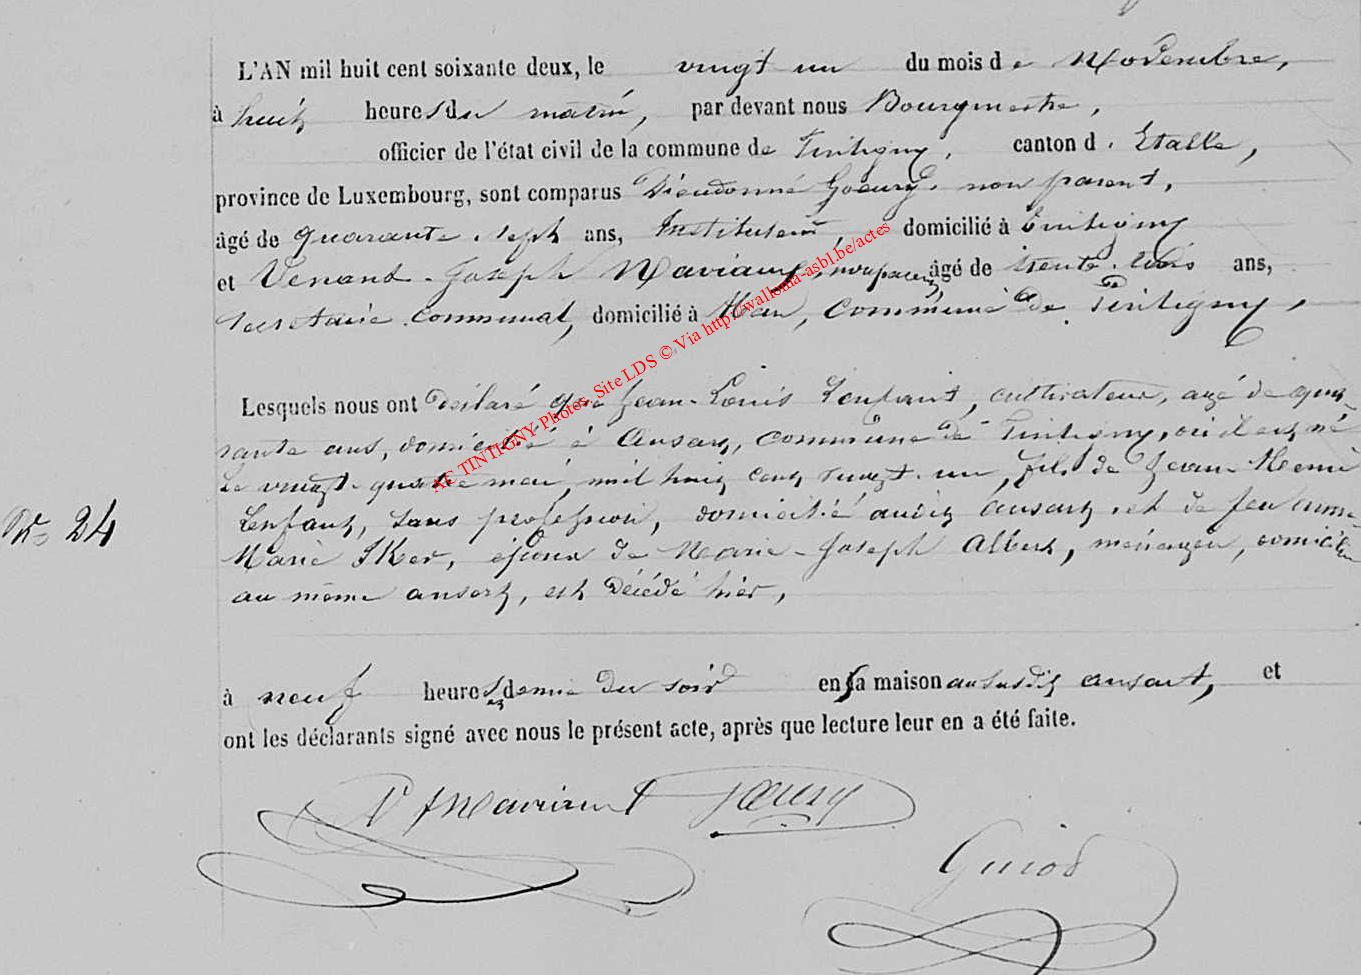 L'AN mil huit cent soixante deux, le vingt un du mois de Novembre,
à huit heures du matin, par devant nous Bourgmestre,
officier de l'état civil de la commune de Tintigny, canton d'Etalle,
province de Luxembourg, sont comparus Dieudonné Goeury, non parent,
âgé de quarante-sept ans, Instituteur, domicilié à Tintigny
et Venant-Joseph Maviaux, non parent, âgé de trente-trois ans,
secrétaire communal, domicilié à Han, commune de Tintigny,
Lesquels nous ont déclaré que Jean-Louis Lenfant, cultivateur, agé de qua-
rante ans, domicilié à Ansart, commune de Tintigny, où il est né
le vingt-quatre mai, mil huit cent vingt-un, fils de Jean-Henri
Lenfant, sans profession, domicilié audit Ansart, et de feu
Marie Sker, époux de Marie-Joseph Albert, ménagère, domiciliée
au même ansart, est décédé hier,
N° 24
à neuf heures et demie du soir en sa maison au susdit ansart, et
ont les déclarants signé avec nous le présent acte, après que lecture leur en a été faite.
Goeury
Guiod
AC TINTIGNY Photos. Site LDS © Via http://wallonia-asbl.be/actes